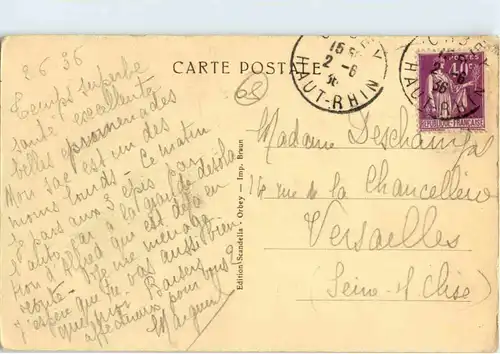 2 6 36
Temps superbe
santé excellente
belles promenades
Mon sac est un des
moins lourds. Ce matin
je pars aux 3 épis par
l'auto car à la grande désola
tion d'Alfred qui est déjà en
route. Je me ménage
j'espère que tu vas aussi bien
que moi Baisers
affectueux pour vous 2
CARTE POSTALE
68
15
2-6
36
HAUT-RHIN
POSTES
40c
REPUBLIQUE FRANCAISE
2-6
36
HAUT-RHIN
Edition Scandella - Orbey - Imp. Braun
Madame Deschamps
14 rue de la Chancellerie
Versailles
(Seine et Oise)